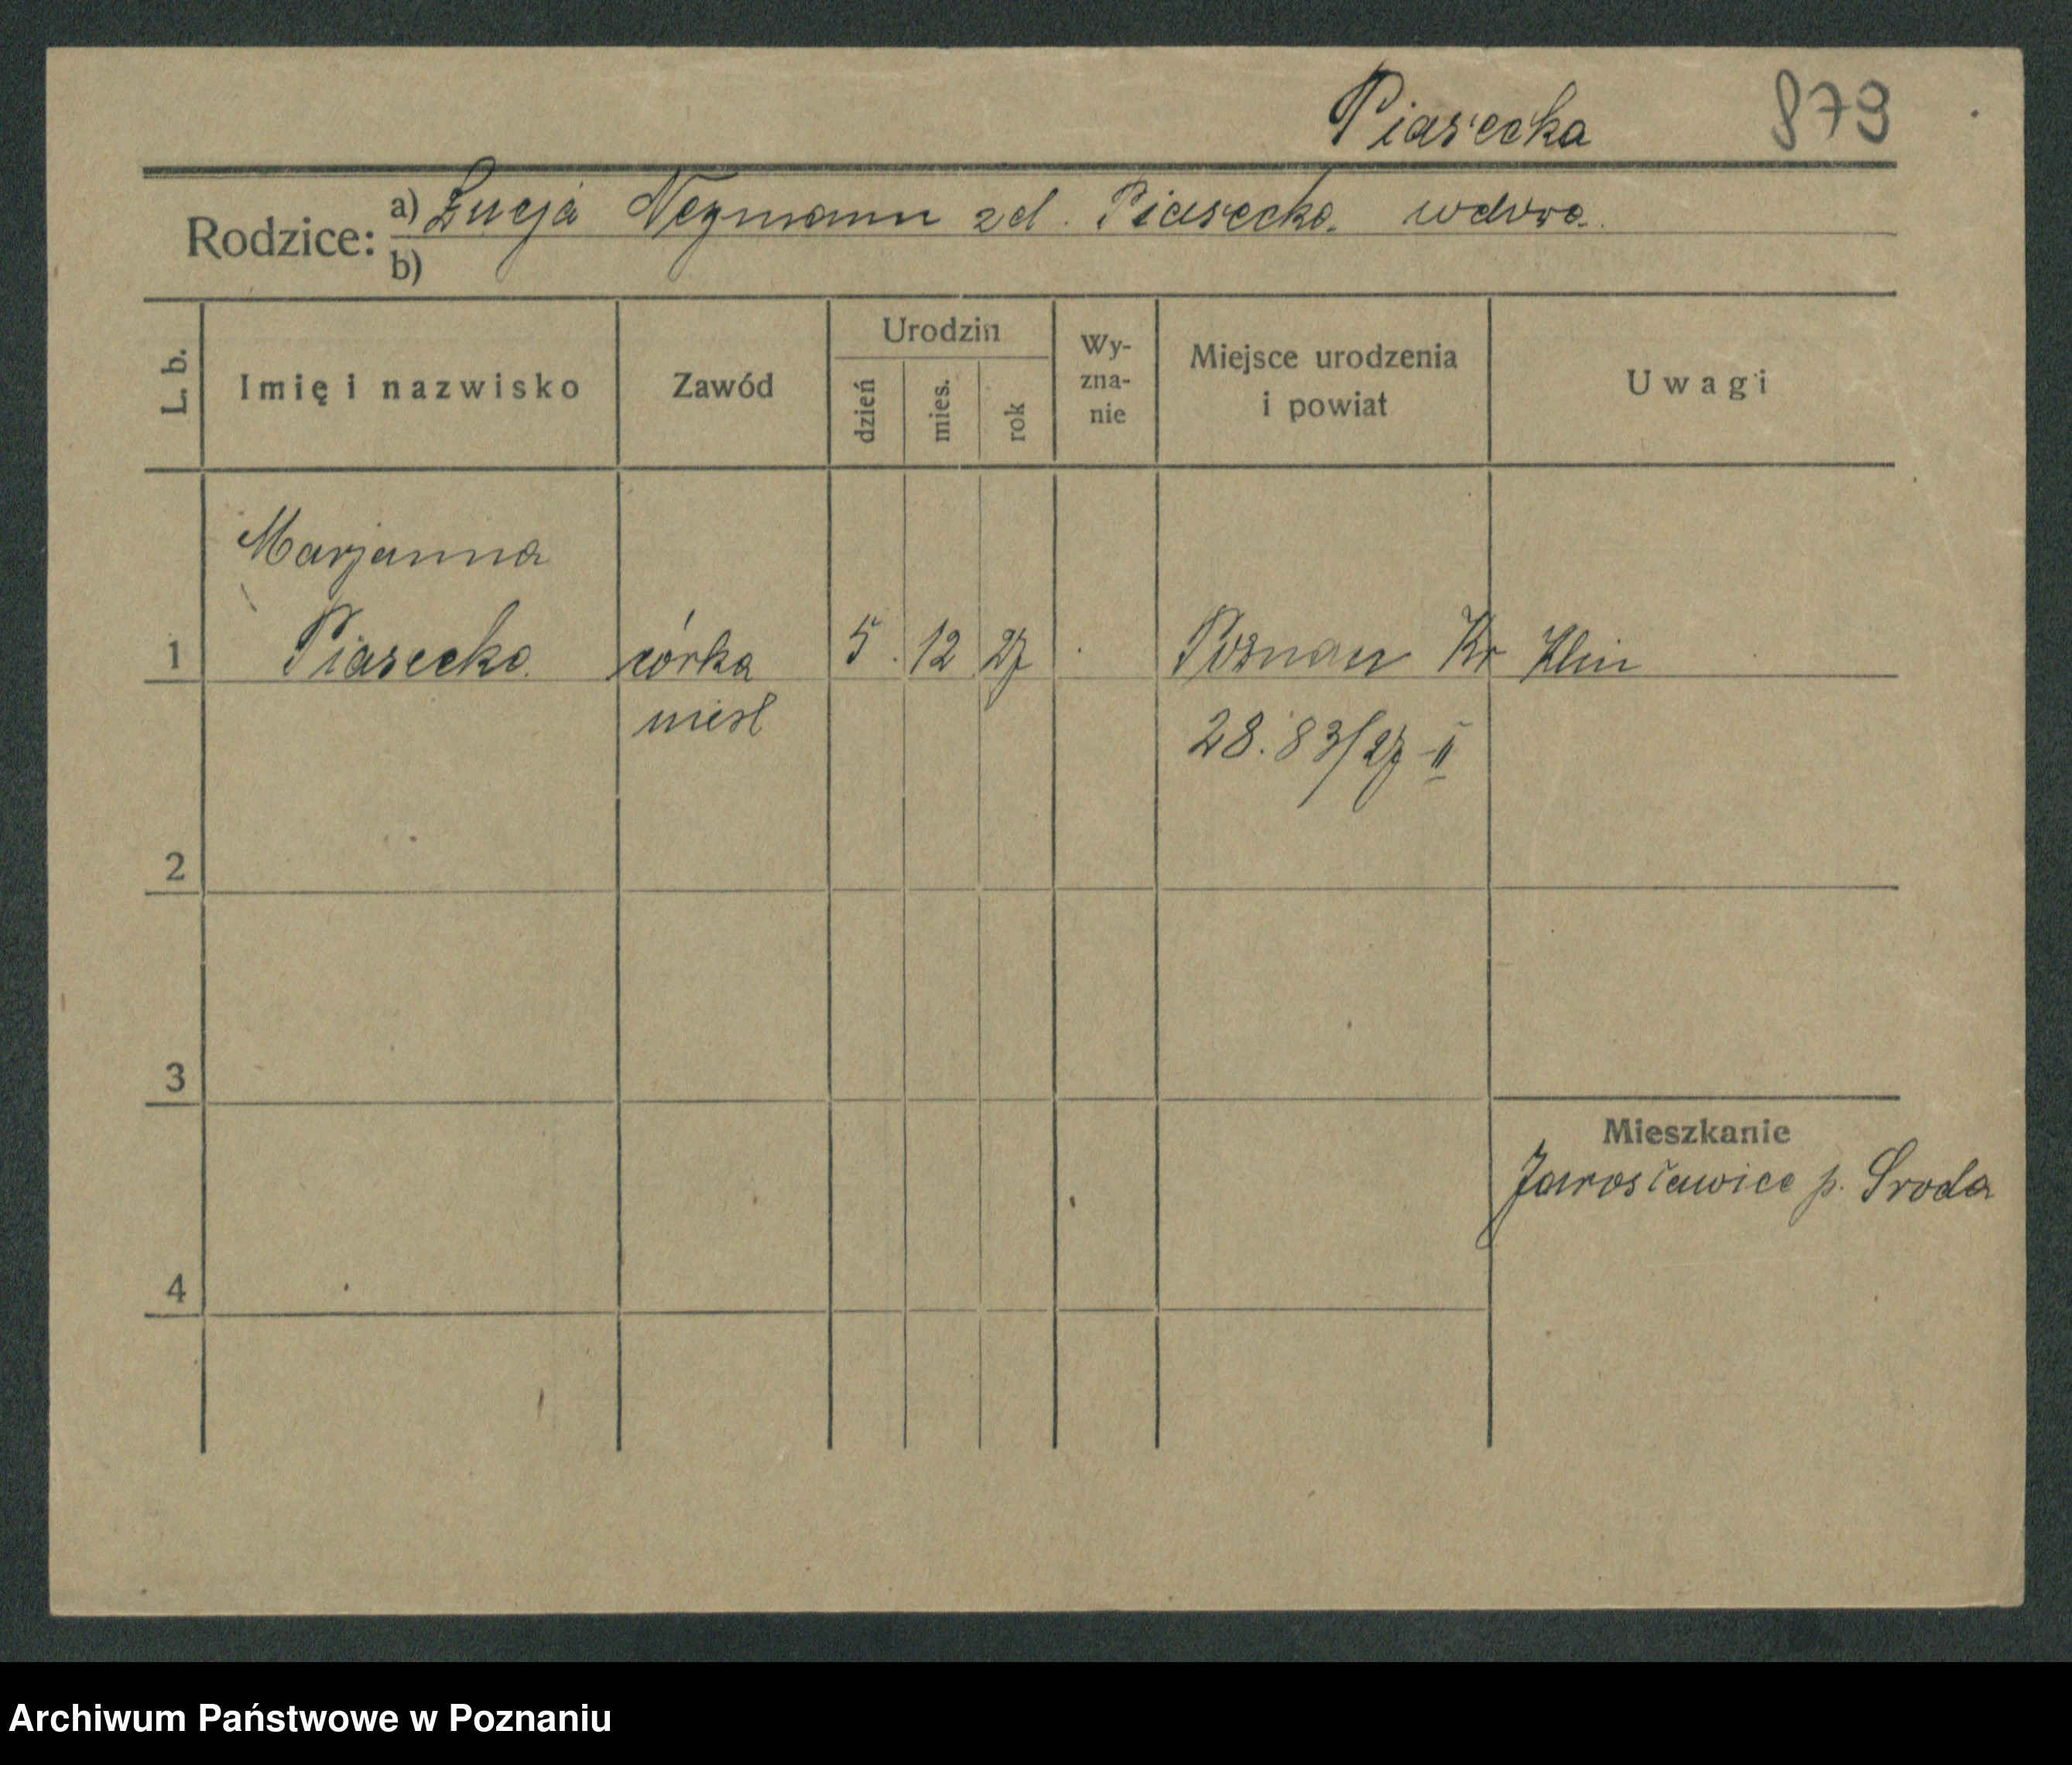 Piasecka 879
Rodzice: a) Łucja Neymann zd. Piasecka wdowa.
b)
L. b. Imię i nazwisko Zawód Urodzin dzień mies. rok Wyznanie Miejsce urodzenia i powiat Uwagi
Marjanna
1 Piasecka córka 5. 12 27 Poznan Kr Klin
nieśl 28.83/27 II
2
3
Mieszkanie
Jarosławice p. Sroda
4
Archiwum Państwowe w Poznaniu